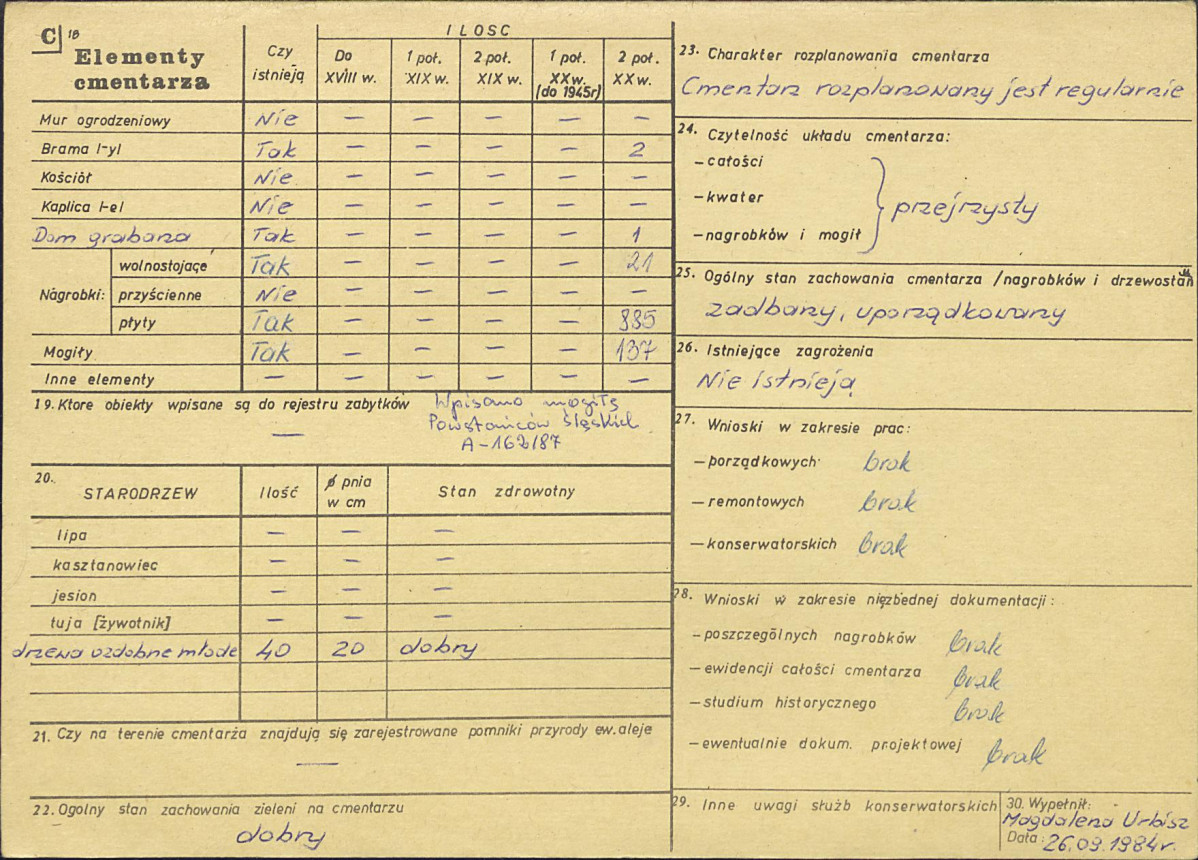 C 18
Elementy cmentarza
Czy istnieją
ILOSC
Do XVIII w.
1 poł. XIX w.
2 poł. XIX w.
1 poł. XX w. (do 1945r)
2 poł. XX w.
Mur ogrodzeniowy Nie — — — — —
Brama /-y/ Tak — — — — 2
Kościół Nie — — — — —
Kaplica /-e/ Nie — — — — —
Dom grabarza Tak — — — — 1
Nagrobki:
wolnostojące Tak — — — — 21
przyścienne Nie — — — — —
płyty Tak — — — — 885
Mogiły Tak — — — — 137
Inne elementy — — — — — —
19. Ktore obiekty wpisane są do rejestru zabytków
—
Wpisano mogiłę
Powstańców śląskich
A-162/87
20.
STARODRZEW Ilość ø pnia w cm Stan zdrowotny
lipa — — —
kasztanowiec — — —
jesion — — —
tuja [żywotnik] — — —
drzewa ozdobne młode 40 20 dobry
21. Czy na terenie cmentarza znajdują się zarejestrowane pomniki przyrody ew. aleje
—
22. Ogolny stan zachowania zieleni na cmentarzu
dobry
23. Charakter rozplanowania cmentarza
Cmentarz rozplanowany jest regularnie
24. Czytelność układu cmentarza:
— całości
— kwater
przejrzysty
— nagrobków i mogił
25. Ogólny stan zachowania cmentarza /nagrobków i drzewostan
zadbany, uporządkowany
26. Istniejące zagrożenia
Nie istnieją
27. Wnioski w zakresie prac:
— porządkowych brak
— remontowych brak
— konserwatorskich brak
28. Wnioski w zakresie niezbednej dokumentacji:
— poszczególnych nagrobków brak
— ewidencji całości cmentarza brak
— studium historycznego brak
— ewentualnie dokum. projektowej brak
29. Inne uwagi służb konserwatorskich
30. Wypełnił:
Magdalena Urbisz
Data: 26.09.1984r.